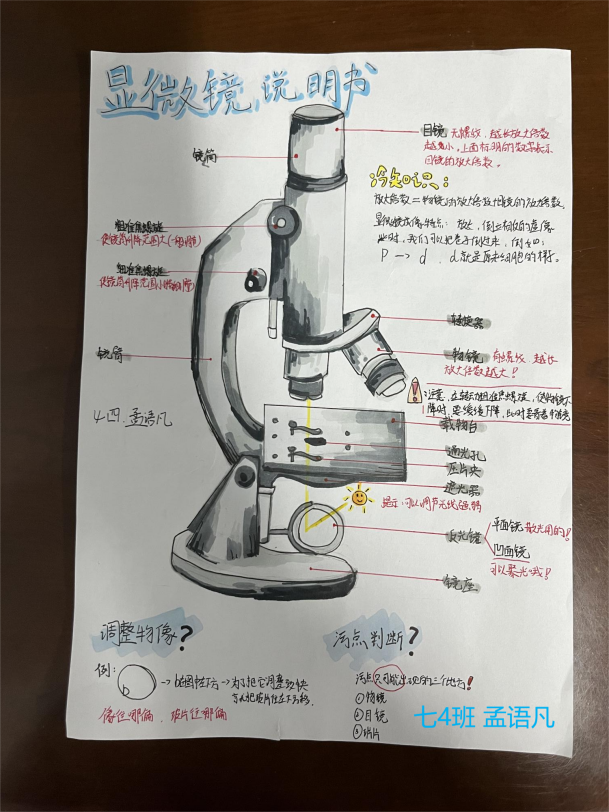 显微镜说明书
目镜 无螺纹，越长放大倍数
越小，上面标明的数字表示
目镜的放大倍数。
镜筒
冷知识：
放大倍数＝物镜的放大倍数×目镜的放大倍数。
显微镜成像特点：放大，倒立
此时，我们可以把它倒过来，例如：
p → d d就是原来细胞的样子。
粗准焦螺旋
使镜筒升降范围大(一般调节)
细准焦螺旋
使镜筒升降范围小
转换器
物镜 有螺纹，越长
放大倍数越大！
镜臂
注意：在转动粗准焦螺旋，使镜筒下
降时，要缓缓下降，此时要看着物镜
七四.孟语凡
载物台
通光孔
压片夹
遮光器
提示：可以调节光线强弱
反光镜
平面镜 散光用的！
凹面镜
可以聚光哦！
镜座
调整物像？
污点判断？
例：
b → b在图左下方→为了把它调整到中央
应把玻片往左下方移
像往哪偏，玻片往哪偏
污点只可能出现的三个地方！
①物镜
②目镜
③玻片
七4班 孟语凡